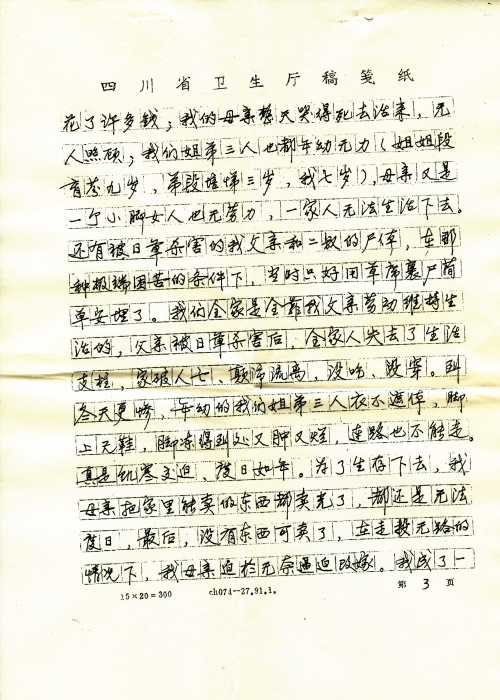 四川省卫生厅稿笺纸
花了许多钱，我的母亲整天哭得死去活来，无
人照顾，我们姐弟三人也都年幼无力（姐姐段
育芬九岁，弟段堦悌三岁，我七岁），母亲又是
一个小脚女人也无劳力，一家人无法生活下去。
还有被日军杀害的我父亲和二奴的尸体，在那
种极端困苦的条件下，当时只好用草席裹尸简
单安埋了。我们全家是全靠我父亲劳动维持生
活的，父亲被日军杀害后，全家人失去了生活
支柱，家破人亡，颠沛流离，没吃、没穿。到
冬天更惨，年幼的我们姐弟三人衣不遮体，脚
上无鞋，脚冻得到处又肿又烂，连路也不能走。
真是饥寒交迫，度日如年。为了生存下去，我
母亲把家里能卖的东西都卖光了，都还是无法
度日，最后，没有东西可卖了，在走投无路的
情况下，我母亲迫於无奈逼迫改嫁。我成了一
15×20=300 ch074--27.91.1. 第 3 页